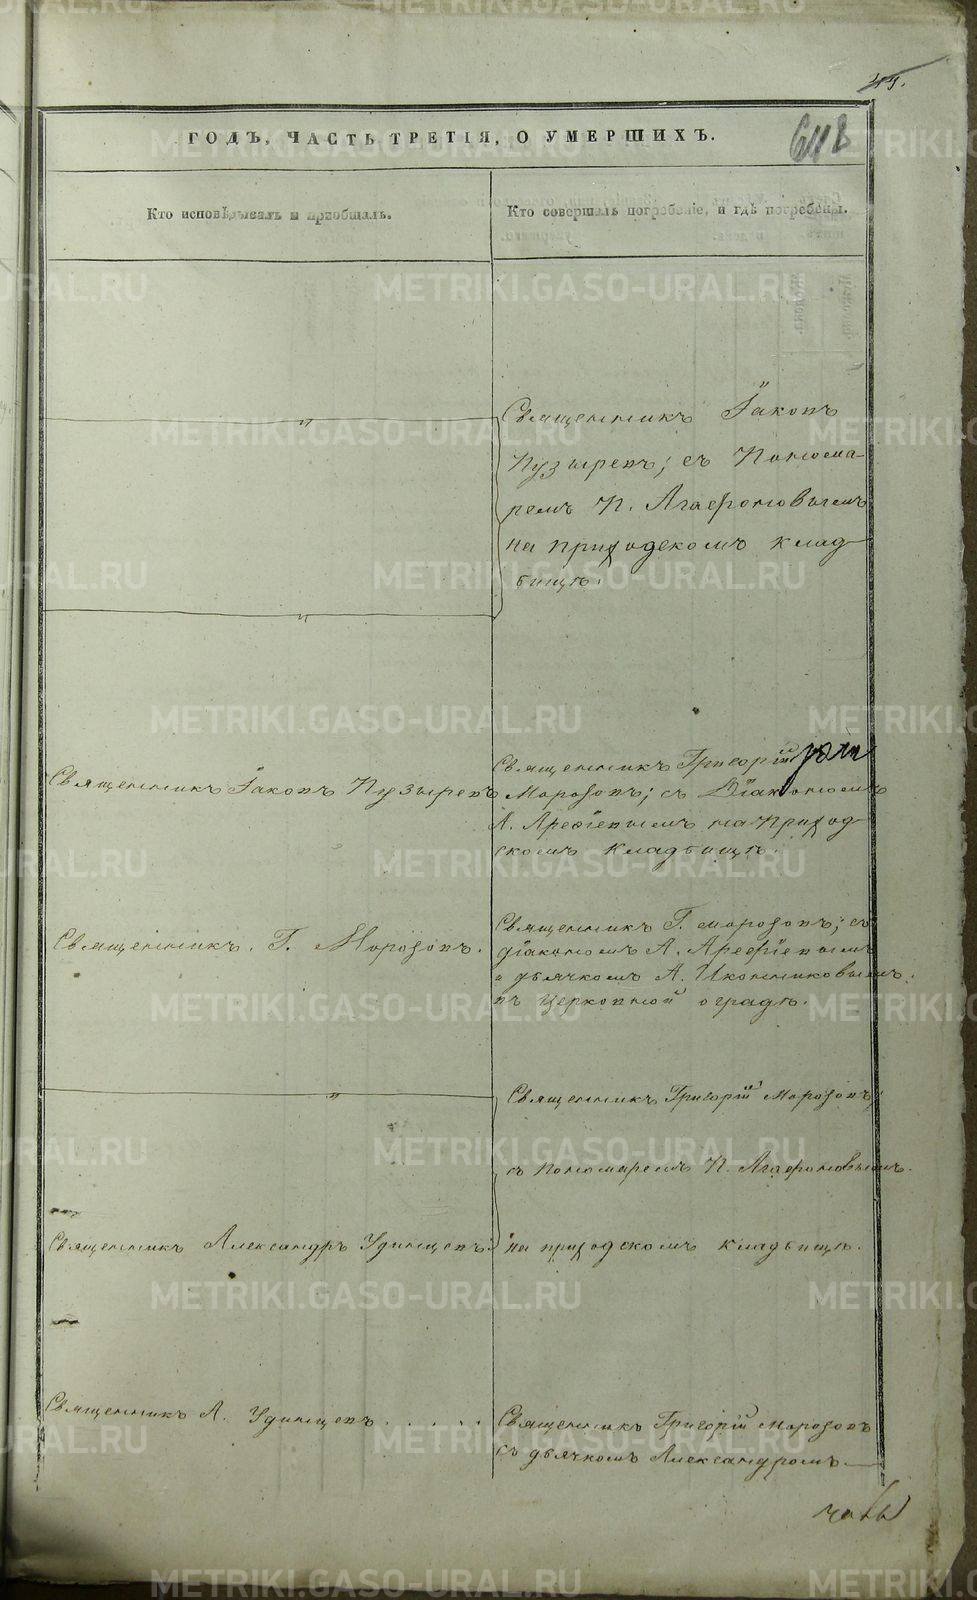 45.
ГОДЪ, ЧАСТЬ ТРЕТІЯ, О УМЕРШИХЪ.
Кто исповѣдывалъ и пріобщалъ.
Кто совершалъ погребеніе, и гдѣ погребены.
Священникъ Іаковъ
Пузыревъ; съ Понома-
ремъ П. Агафоновымъ
на приходскомъ клад-
бищѣ.
Священникъ Іаковъ Пузыревъ
Священникъ Григорій
Морозовъ; съ Діакономъ
А. Арефіевымъ на приход-
скомъ кладбищѣ.
Священникъ. Г. Морозовъ.
Священникъ Г. Морозовъ; съ
діакономъ А. Арефіевымъ
и дьячкомъ А. Иконниковымъ.
въ церковной оградѣ.
Священникъ Григорій Морозовъ;
съ пономаремъ П. Агафоновымъ.
Священникъ Александръ Удинцевъ.
на приходскомъ кладбищѣ.
Священникъ А. Удинцевъ . . . . .
Священникъ Григорій Морозовъ
съ дьячкомъ Александромъ
METRIKI.GASO-URAL.RU